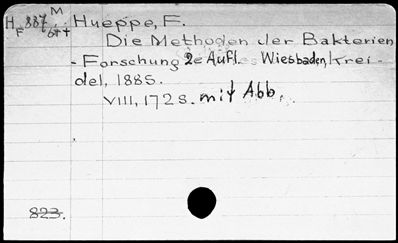 H 887 M Hueppe, F.
F 644
Die Methoden der Bakterien
-Forschung 2e Aufl. Wiesbaden, Krei-
del, 1885.
VIII, 172 S. mit Abb.
823.